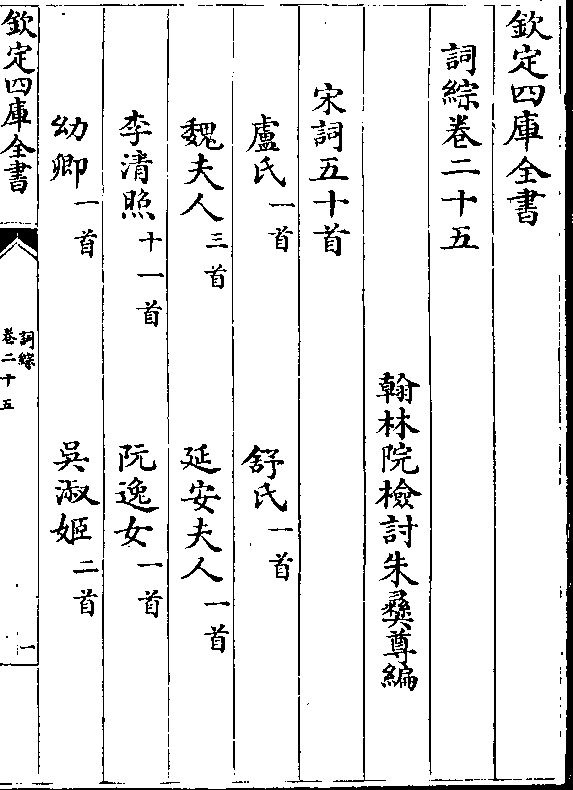 欽定四庫全書
詞綜卷二十五
翰林院檢討朱彞尊編
宋詞五十首
盧氏一首　舒氏一首
魏夫人三首　延安夫人一首
李清照十一首　阮逸女一首
幼卿一首　吳淑姬二首
欽定四庫全書
詞綜
卷二十五
一